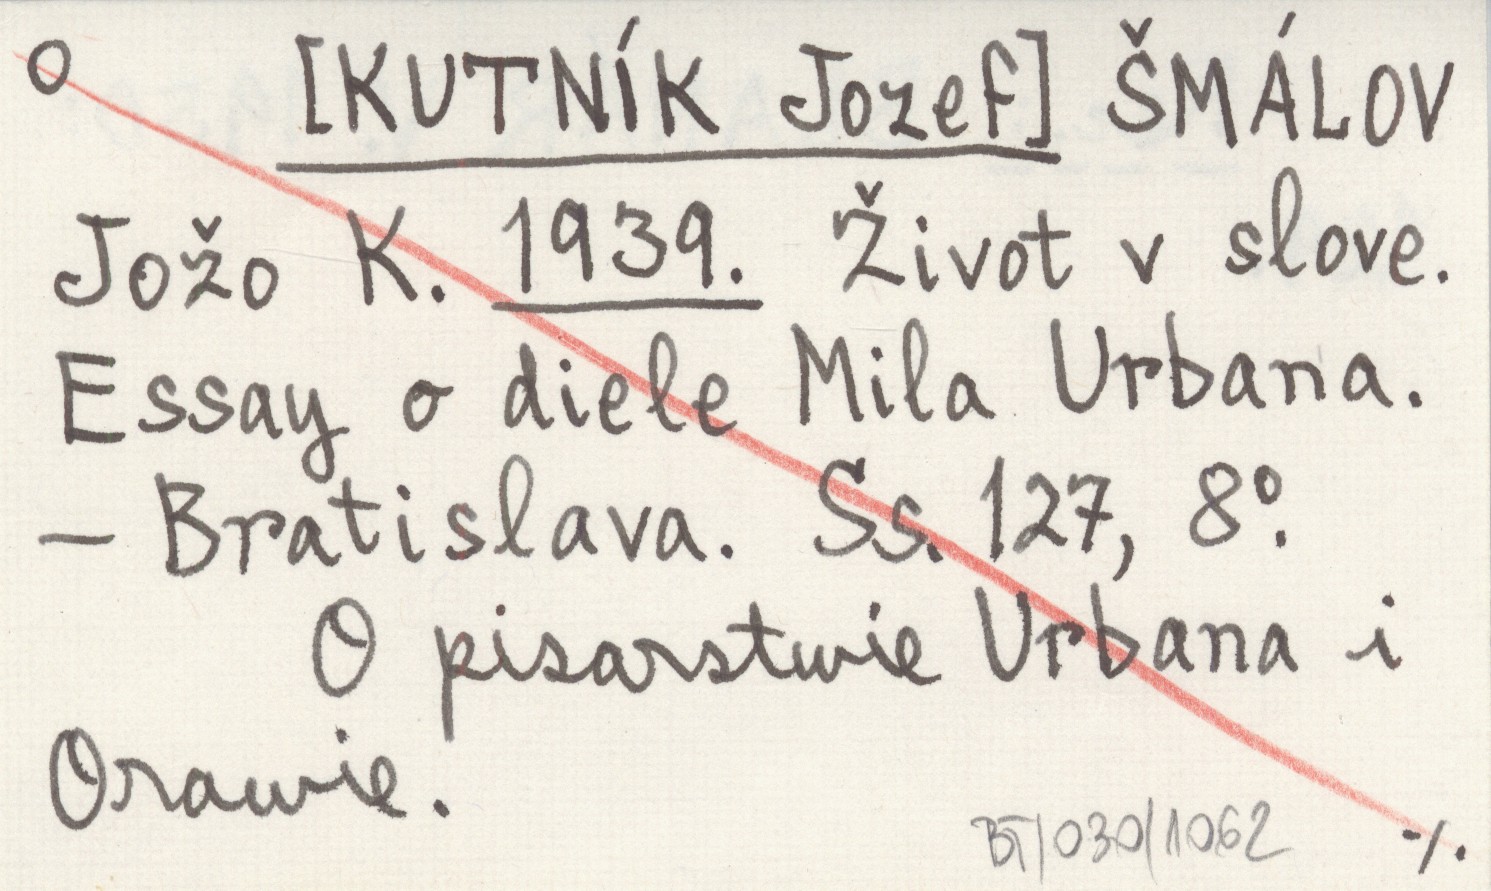 O [KUTNÍK Jozef] ŠMÁLOV
Jožo K. 1939. Život v slove.
Essay o diele Mila Urbana.
— Bratislava. Ss. 127, 8º.
O pisarstwie Urbana i
Orawie.
BT/030/1062 ·/.